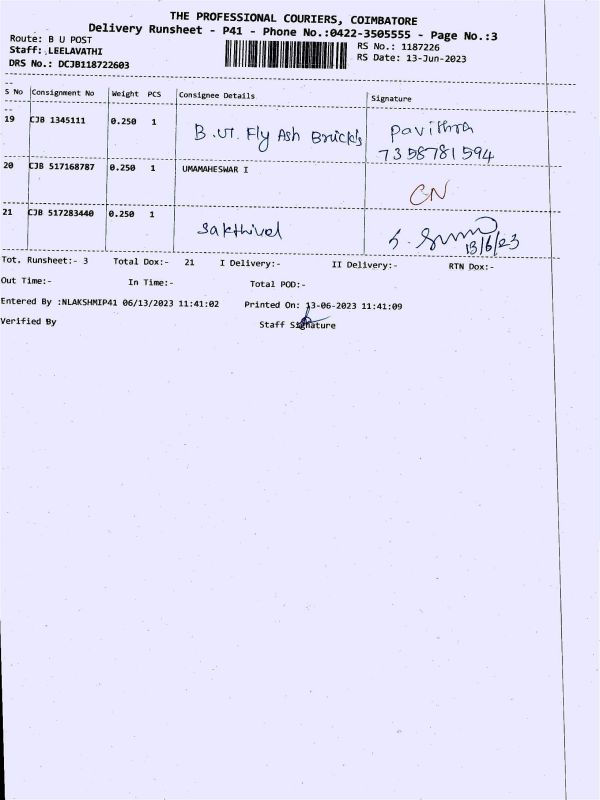 THE PROFESSIONAL COURIERS, COIMBATORE
Delivery Runsheet - P41 - Phone No.:0422-3505555 - Page No.:3
Route: B U POST
RS No.: 1187226
Staff: LEELAVATHI
RS Date: 13-Jun-2023
DRS No.: DCJB118722603
S No Consignment No Weight PCS Consignee Details Signature
19 CJB 1345111 0.250 1 B.UT. Fly Ash Bricks Pavithra
7358781594
20 CJB 517168787 0.250 1 UMAMAHESWAR I
CN
21 CJB 517283440 0.250 1 Sakthivel
13/6/23
Tot. Runsheet:- 3 Total Dox:- 21 I Delivery:- II Delivery:- RTN Dox:-
Out Time:- In Time:- Total POD:-
Entered By :NLAKSHMIP41 06/13/2023 11:41:02 Printed On: 13-06-2023 11:41:09
Verified By Staff Signature